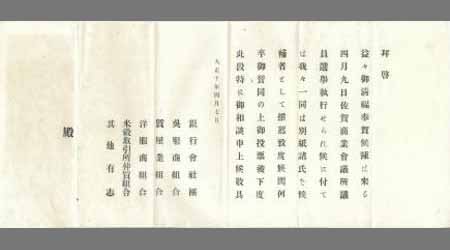 拝啓
益々御清福奉賀候陳は来る
四月九日佐賀商業會議所議
員選擧執行せられ候に付て
は我々一同は別紙諸氏を候
補者として推薦致度候間何
卒御賛同の上御投票被下度
此段特に御相談申上候敬具
大正十年四月七日
銀行會社團
呉服商組合
質屋業組合
洋服商組合
米穀取引所仲買組合
其他有志
殿